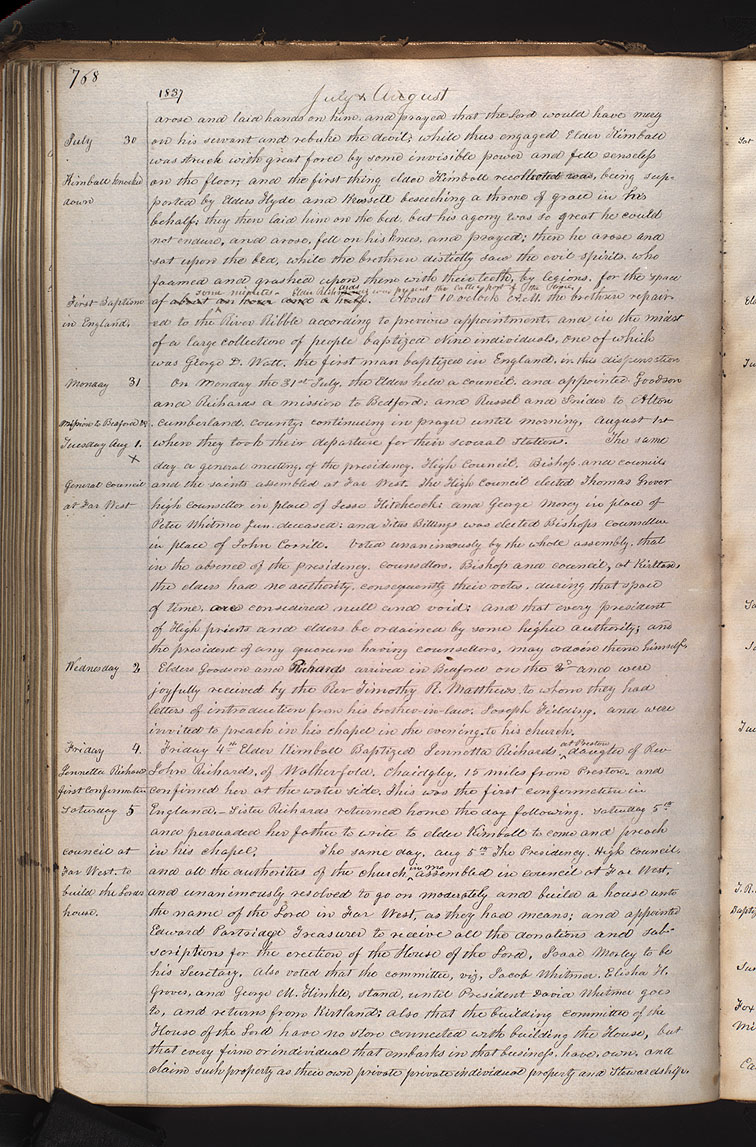 768
1837
July & August
arose and laid hands on him, and prayed that the Lord would have mercy
July 30 on his servant and rebuke the devil; while thus engaged Elder Kimball
was struck with great force by some invisible power and fell senseless
Kimball knocked on the floor, and the first thing elder Kimball recollected was, being sup-
down ported by Elders Hyde and Russell beseeching a throne of grace in his
behalf; they then laid him on the bed, but his agony was so great he could
not endure, and arose, fell on his knees, and prayed; then he arose and
sat upon the bed, while the brethren distictly saw the evil spirits, who
foamed and gnashed upon them with their teeth, by legions, for the space
some minutes – Elder Richards was present the latter part of the scene.
First Baptism of about an hour and a half. About 10 oclock a.m. the brethren repair
in England. ed to the River Ribble according to previous appointment, and in the midst
of a large collection of people baptized nine individuals, one of which
was George D. Watt, the first man baptized in England, in this dispensation
Monday 31 On Monday the 31st July, the Elders held a council, and appointed Goodson
and Richards a mission to Bedford; and Russel and Snider to Alston
Mission to Bedford &c Cumberland County; continuing in prayer until morning, August 1st
Tuesday Aug 1. when they took their departure for their several stations. The same
X day a general meeting of the presidency, High Council, Bishop and council
General Council and the saints assembled at Far West. The High Council elected Thomas Grover
at Far West high counsellor in place of Jesse Hitchcock; and George Morey in place of
Peter Whitmer Jun. deceased; and Titus Billings was elected Bishops counsellor
in place of John Corrill. Voted unanimously by the whole assembly, that
in the absence of the presidency, counsellors, Bishop and council, at Kirtland,
the elders had no authority, consequently their votes, during that space
of time, are considired null and void; and that every president
of High priests and elders be ordained by some higher authority; and
the president of any quorum having counsellors, may ordain them himself.
Wednesday 2 Elders Goodson and Richards arrived in Bedford on the 2d and were
joyfully received by the Rev Timothy R. Matthews, to whom they had
letters of introduction from his brother-in-law, Joseph Fielding, and were
invited to preach in his chapel in the evening, to his church.
at Preston
Friday 4. Friday 4th Elder Kimball Baptized Jennetta Richards, daughter of Rev
Jennetta Richards John Richards, of Walkerfold, Chaidgley, 15 miles from Preston, and
first Confirmation confirmed her at the water side. This was the first confirmation in
Saturday 5 England. – Sister Richards returned home the day following, Saturday 5th
and persuaded her father to write to elder Kimball to come and preach
council at in his chapel. The same day, Aug 5th The Presidency, High Council,
in Mo
Far West, to and all the authorities of the church, assembled in council at Far West,
build the Lords and unanimously resolved to go on moderately and build a house unto
house. the name of the Lord in Far West, as they had means; and appointed
Edward Partridge Treasurer to receive all the donations and sub-
scriptions for the erection of the House of the Lord, Isaac Morley to be
his Secretary. Also voted that the committee, viz, Jacob Whitmer, Elisha H.
Groves, and George M. Hinkle, stand, until President David Whitmer goes
to, and returns from Kirtland; also that the building committee of the
House of the Lord have no store connected with building the House, but
that every firm or individual that embarks in that business, have, own, and
claim such property as their own private private individual property and Stewardship.